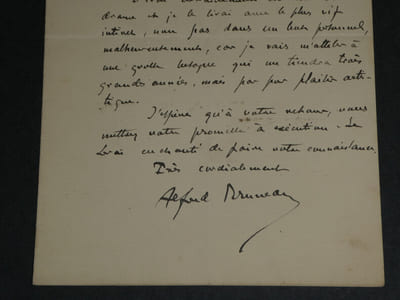 drame et je le lirai avec le plus vif
intérêt, non pas dans un but personnel,
malheureusement, car je vais m'atteler à
une grosse besogne qui me tiendra très
grandes années, mais par pur plaisir arti-
tique.
J'espère qu'à votre retour, vous
mettrez votre promesse à exécution. Je
serai enchanté de faire votre connaissance.
Très cordialement
Alfred Bruneau